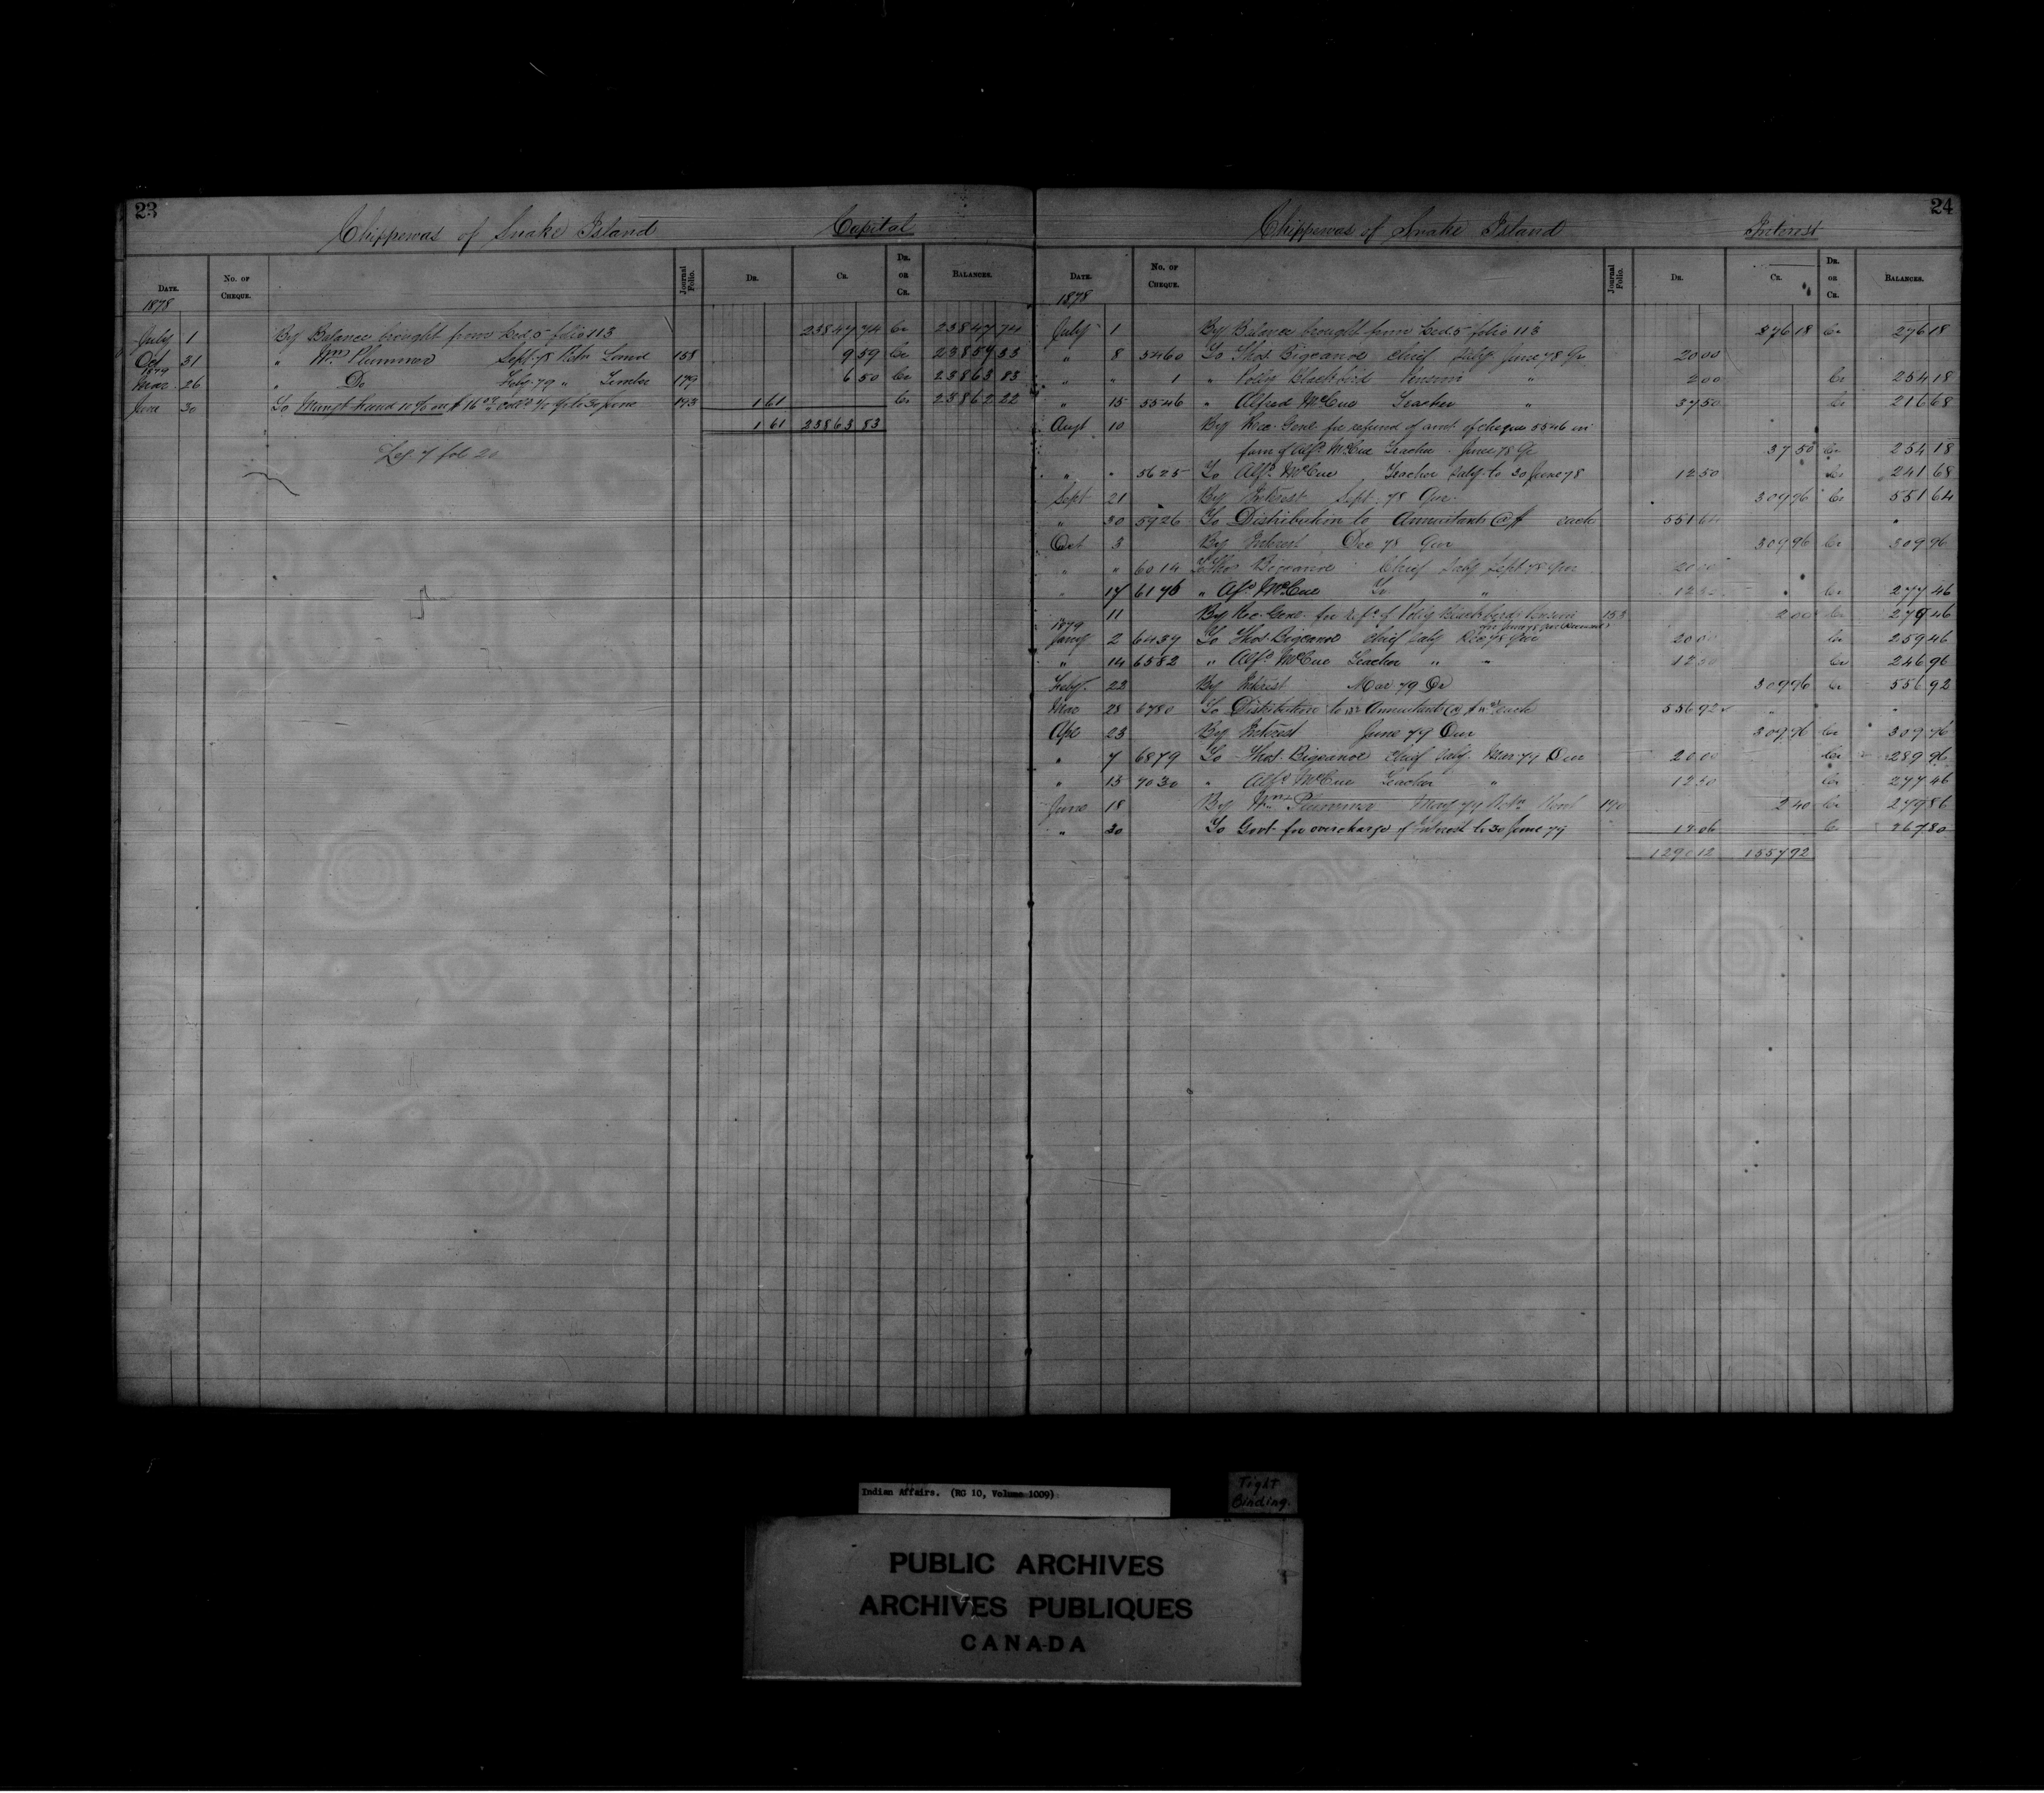 23
Chippewas of Snake Island Capital
DATE. No. OF CHEQUE. Journal Folio. DR. CR. DR. OR CR. BALANCES.
1878
July 1 By Balance brought from Led. 5 folio 113 23847 74 Cr 23847 74
Oct 31 " Wm Plummer Sept. 78 Retn Land 158 9 59 Cr 23857 33
1879
Mar. 26 " Do Feby 79 " Timber 179 6 50 Cr 23863 83
June 30 To Mangt Fund 10 % on $16 09 193 1 61 Cr 23862 22
1 61 23863 83
Leg. 7 fol. 20
24
Chippewas of Snake Island Interest
DATE. No. OF CHEQUE. Journal Folio. DR. CR. DR. OR CR. BALANCES.
1878
July 1 By Balance brought from Led. 5 folio 113 276 18 Cr 276 18
" 8 5460 To Thos. Bigcanoe Chief Saly June 78 Qr 20 00
" " 1 " Polly Blackbird Pension " 2 00 Cr 254 18
" 15 5546 " Alfred McCue Teacher " 37 50 Cr 216 68
Augt 10 By Rec. Genl. for refund of amt. of cheque 5546 in
favr of Alfd. McCue Teacher June 78 Qr 37 50 Cr 254 18
" " 5625 To Alfd. McCue Teacher Saly to 30 June 78 12 50 Cr 241 68
Sept 21 By Interest Sept. 78 Qur. 309 96 Cr 551 64
" 30 5926 To Distribution to Annuitants @ $ each 551 64 "
Oct 3 By Interest Dec 78 Qur 309 96 Cr 309 96
" " 6014 To Thos Bigcanoe Chief Saly Sept 78 Qur 20 00
" 17 6176 " Alfd McCue " 12 50 Cr 277 46
11 By Rec. Genl. for refd of Polly Blackbirds Pension 153 2 00 Cr 279 46
for June 78 Qur
1879
Jany 2 6437 To Thos. Bigcanoe Chief Saly Dec 78 Qur 20 00 Cr 259 46
" 14 6582 " Alfd. McCue Teacher " " 12 50 Cr 246 96
Feby. 22 By Interest Mar 79 Qr 309 96 Cr 556 92
Mar 28 6780 To Distribution to Annuitants @ $ each 556 92 " "
Apl 23 By Interest June 79 Qur 309 96 Cr 309 96
" 7 6879 To Thos. Bigcanoe Chief Saly. Mar 79 Qur 20 00 Cr 289 96
" 15 7030 " Alfd McCue Teacher " 12 50 Cr 277 46
June 18 By Wm Plummer May 79 Retn Rent 190 2 40 Cr 279 86
" 30 To Govt. for overcharge of Interest to 30 June 79 12 06 Cr 267 80
1290 12 1557 92
Indian Affairs. (RG 10, Volume 1009)
Tight
Binding.
PUBLIC ARCHIVES
ARCHIVES PUBLIQUES
CANADA